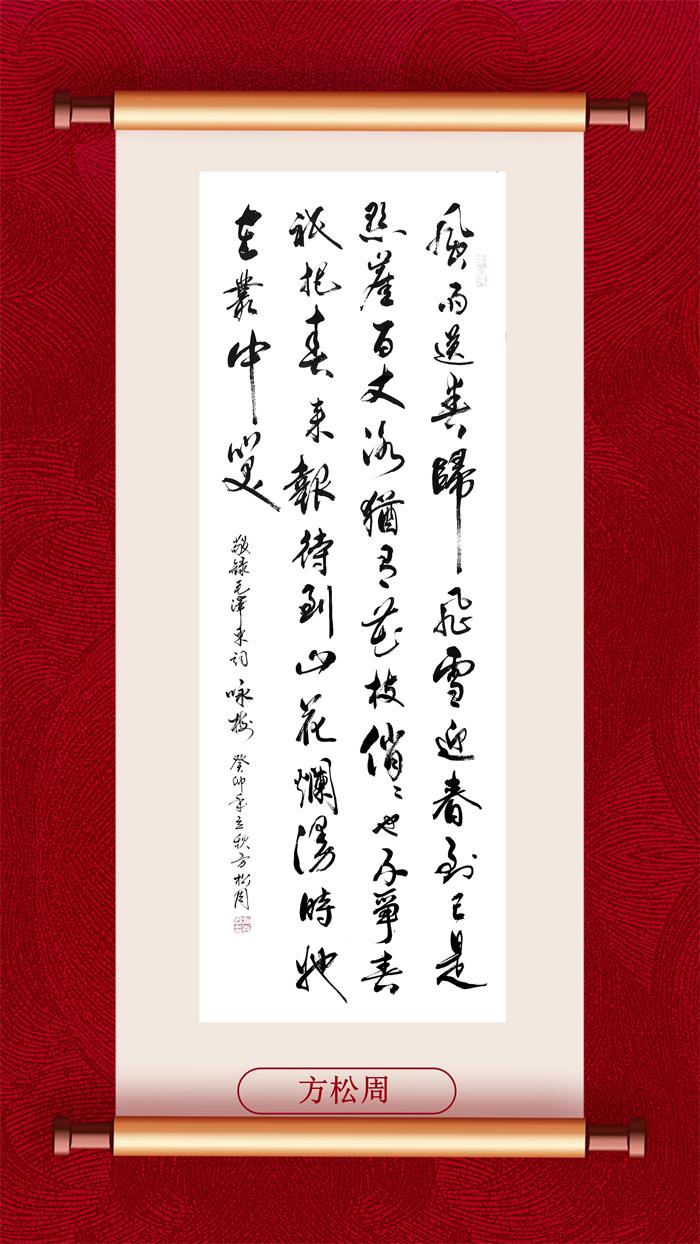 風雨送春歸飛雪迎春到已是
懸崖百丈冰猶有花枝俏〻也不爭春
祇把春来報待到山花爛漫時她
在叢中笑 敬録毛澤東詞 咏梅 癸卯年立秋方松周
方松周